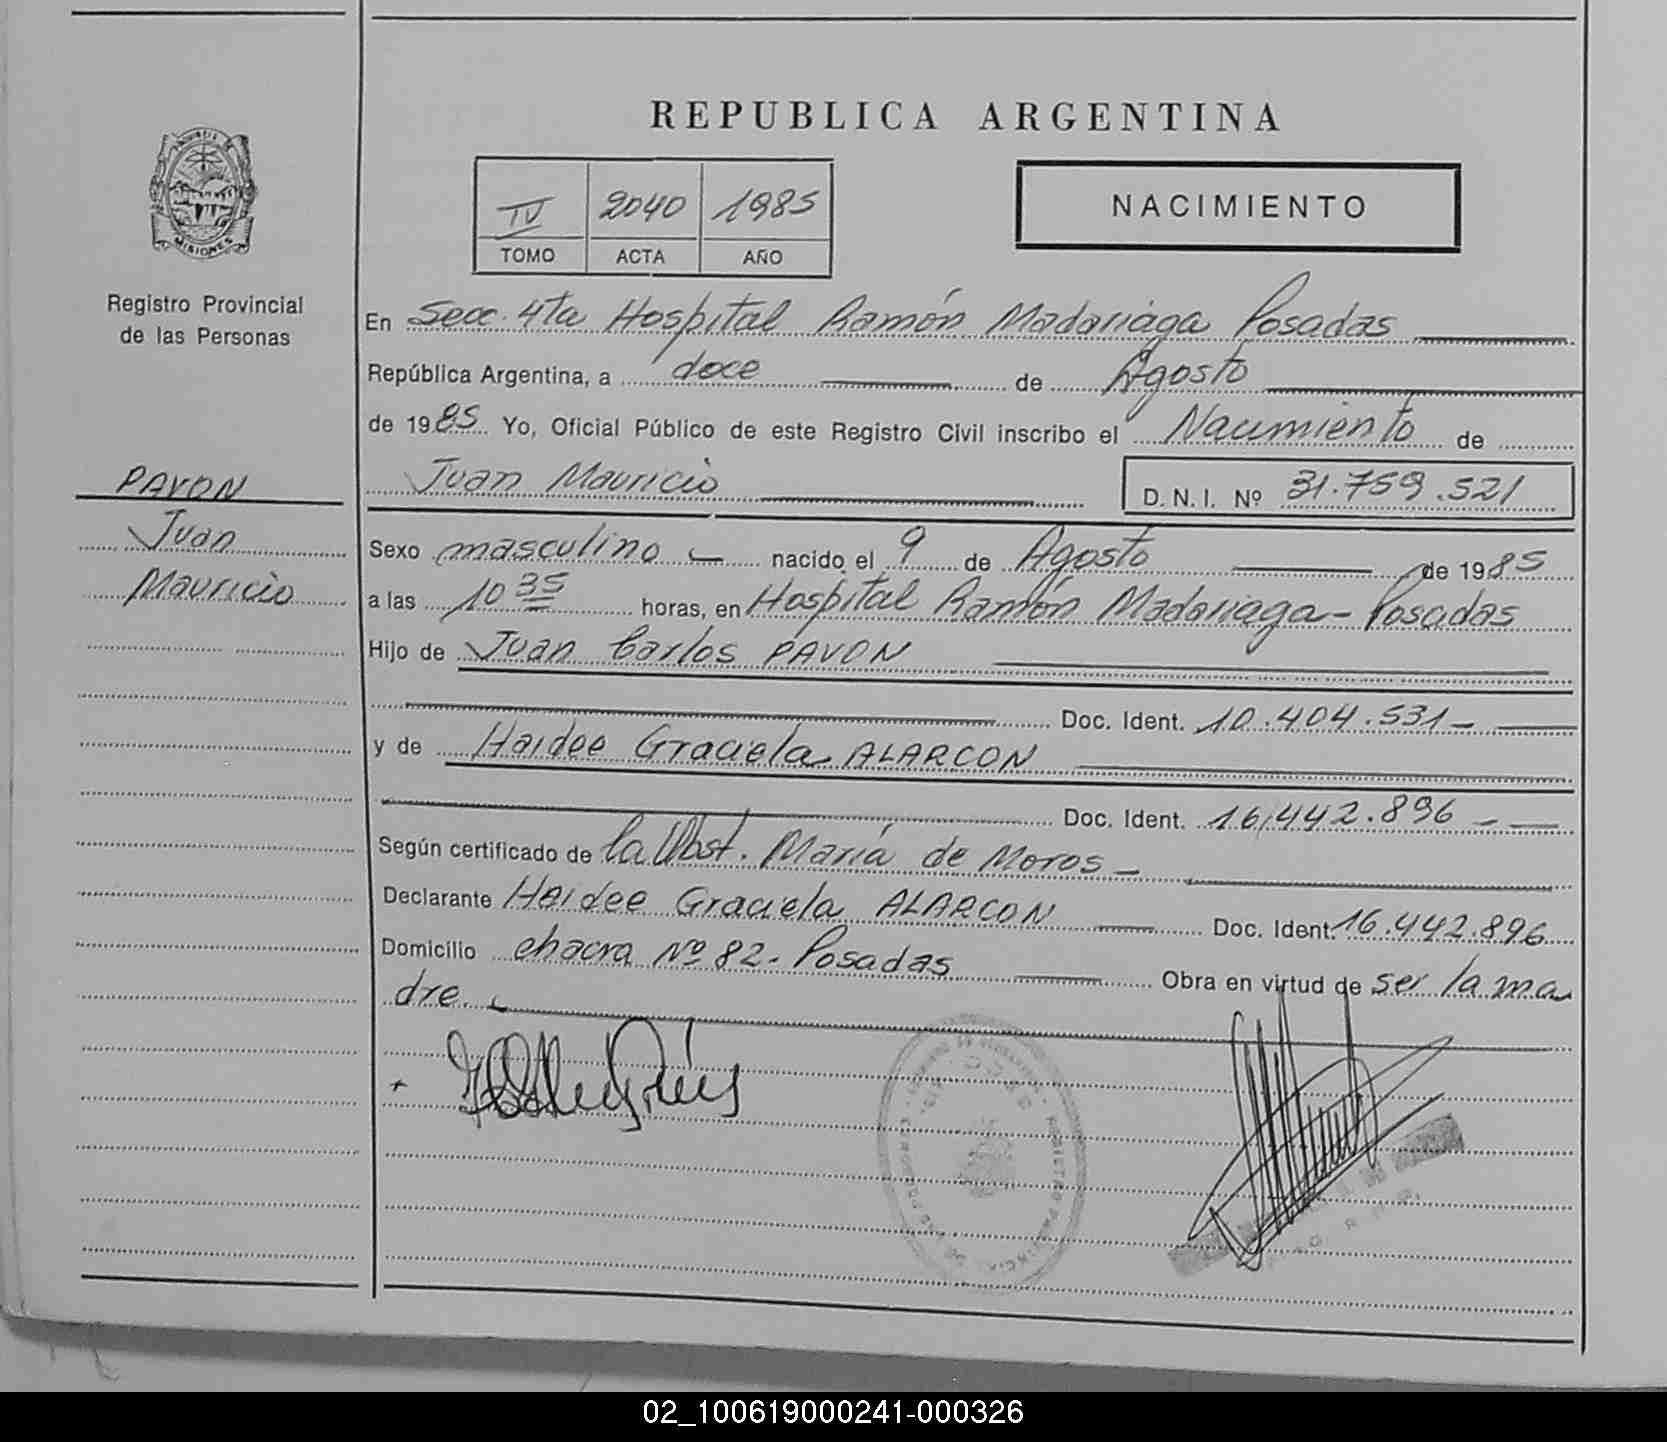 REPUBLICA ARGENTINA
IV 2040 1985
TOMO ACTA AÑO
NACIMIENTO
MISIONES
Registro Provincial
de las Personas
PAVON
Juan
Mauricio
En Secc. 4ta Hospital Ramón Madariaga Posadas
República Argentina, a doce de Agosto
de 1985 Yo, Oficial Público de este Registro Civil inscribo el Nacimiento de
Juan Mauricio D.N.I. Nº 31.759.521
Sexo masculino nacido el 9 de Agosto de 1985
a las 10 35 horas, en Hospital Ramón Madariaga - Posadas
Hijo de Juan Carlos PAVON
Doc. Ident. 10.404.531 -
y de Haidee Graciela ALARCON
Doc. Ident. 16,442.896 -
Según certificado de la Obst. María de Moros -
Declarante Haidee Graciela ALARCON Doc. Ident. 16.442.896
Domicilio chacra Nº 82 - Posadas Obra en virtud de ser la ma
dre.
02_100619000241-000326